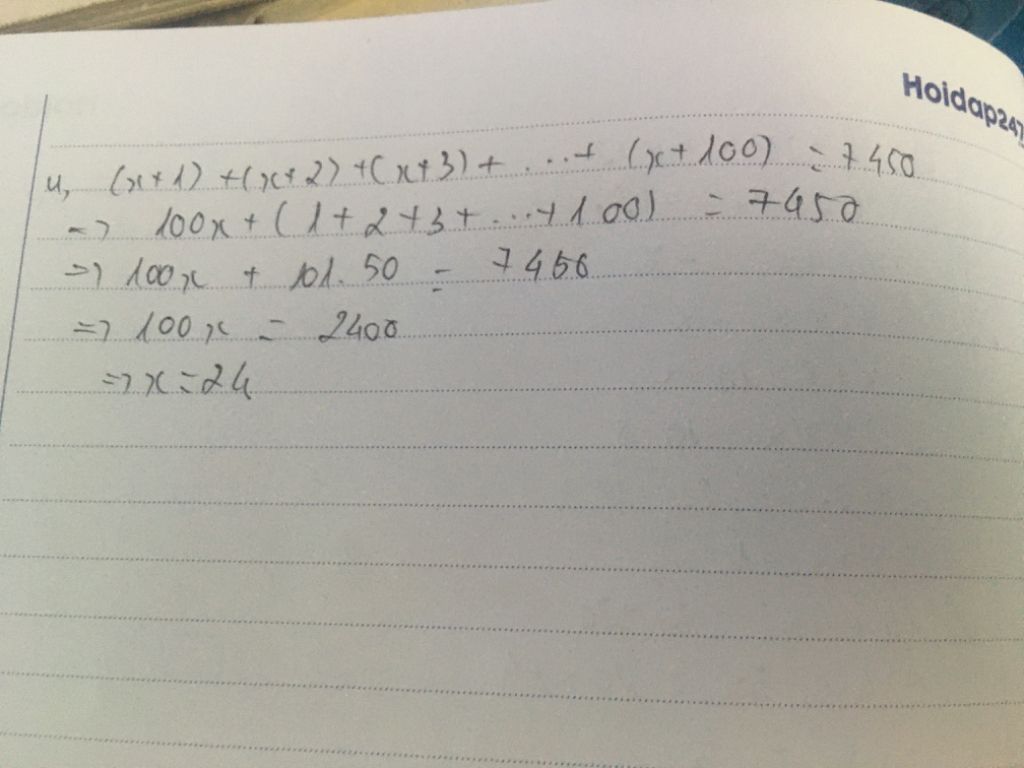 Hoidap247
4, (x+1) +(x+2) +(x+3) + ...+ (x+100) = 7450
=> 100x + (1+2+3+...+100) = 7450
=> 100x + 101.50 = 7450
=> 100x = 2400
=> x = 24